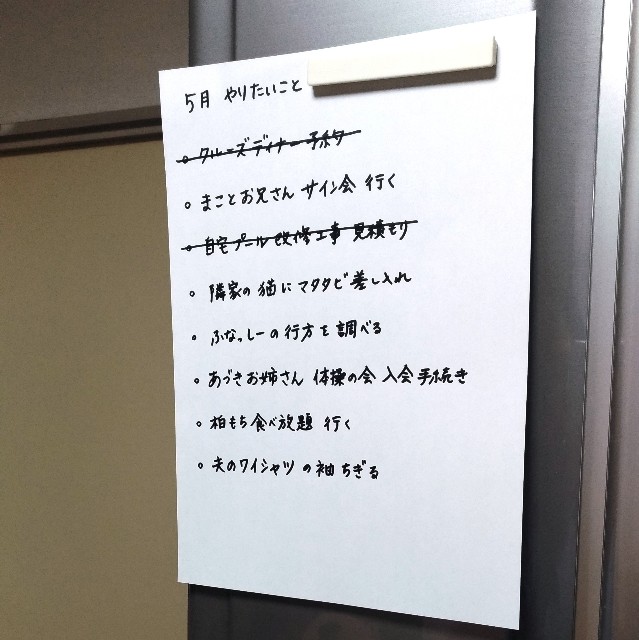 5月 やりたいこと
○ クルーズディナー予約
○ まことお兄さん サイン会 行く
○ 自宅プール改修工事 見積もり
○ 隣家の猫にマタタビ差し入れ
○ ふなっしーの行方を調べる
○ あづきお姉さん 体操の会 入会手続き
○ 柏もち食べ放題 行く
○ 夫のワイシャツの袖ちぎる